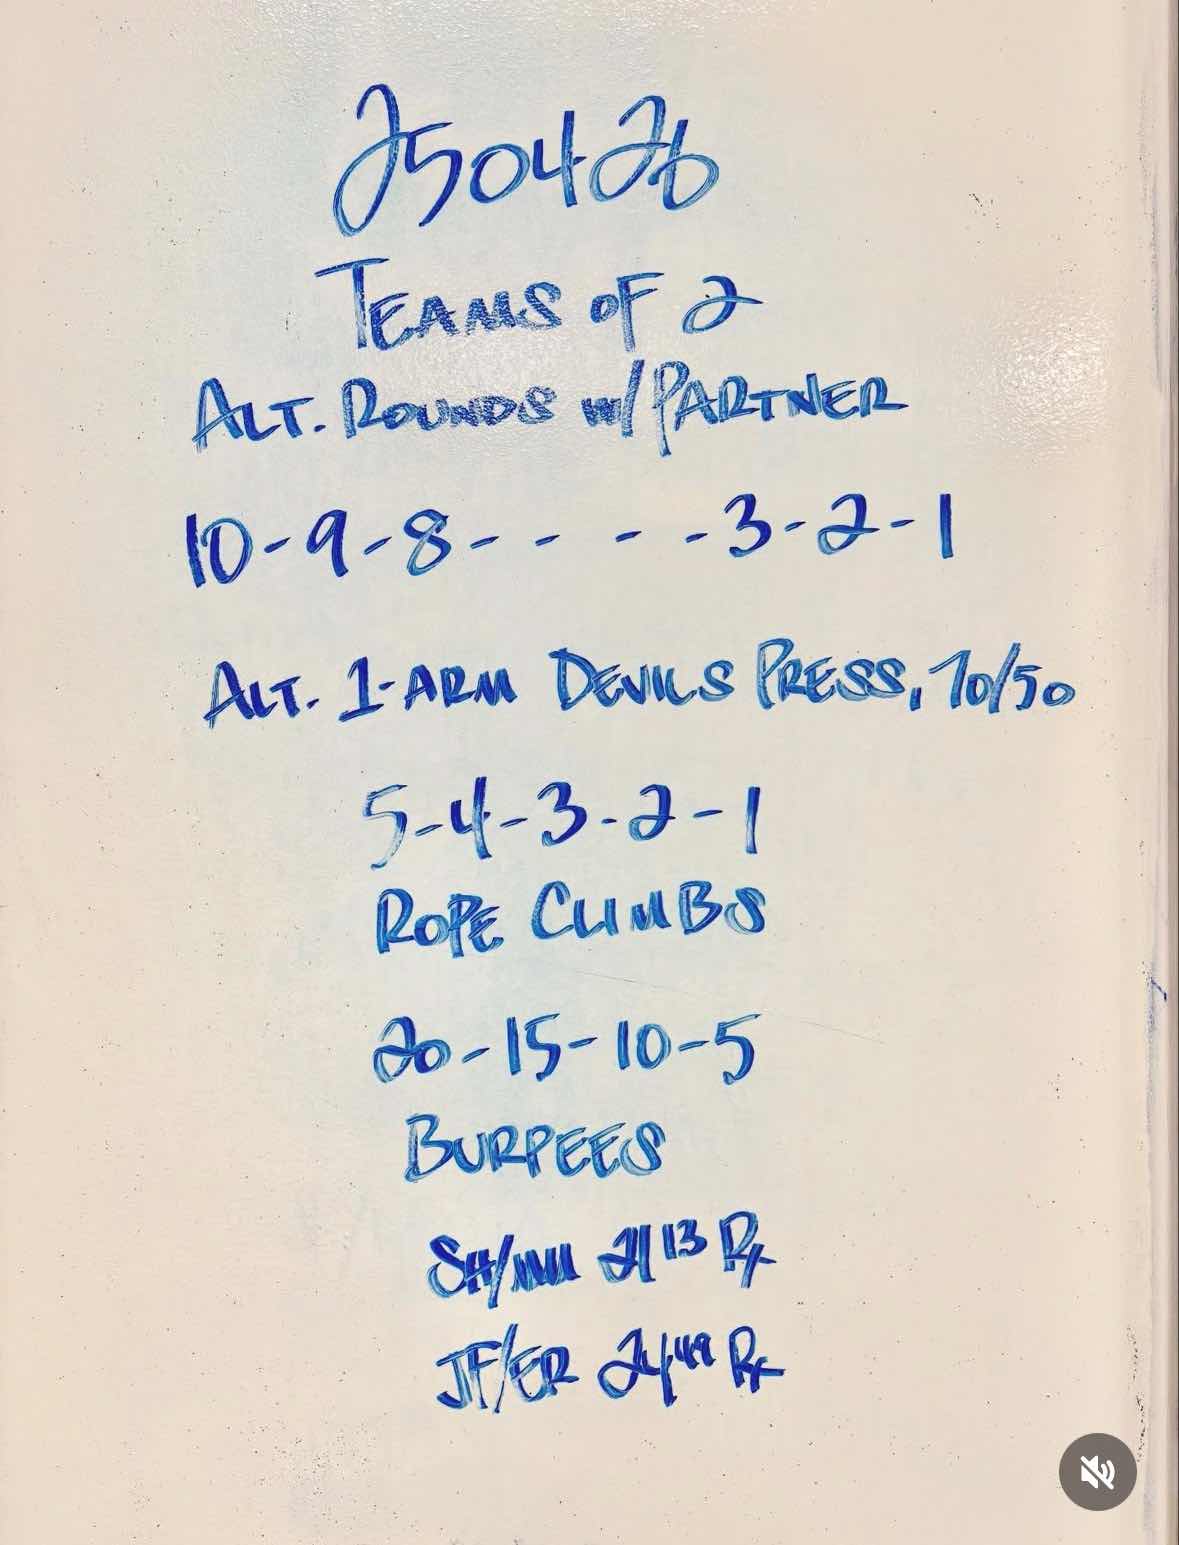 250426
TEAMS OF 2
ALT. ROUNDS W/ PARTNER
10-9-8- - - -3-2-1
ALT. 1-ARM DEVILS PRESS, 70/50
5-4-3-2-1
ROPE CLIMBS
20-15-10-5
BURPEES
SH/MM 21 13 Rx
JF/ER 24 49 Rx